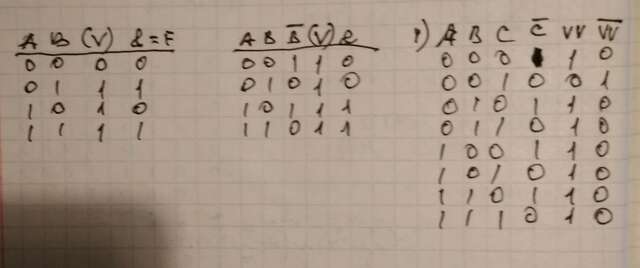 A B (V) &=F
0 0 0 0
0 1 1 1
1 0 1 0
1 1 1 1
A B B̅ (V) &
0 0 1 1 0
0 1 0 1 0
1 0 1 1 1
1 1 0 1 1
1) A B C C̅ VV V̅V̅
0 0 0 1 1 0
0 0 1 0 0 1
0 1 0 1 1 0
0 1 1 0 1 0
1 0 0 1 1 0
1 0 1 0 1 0
1 1 0 1 1 0
1 1 1 0 1 0